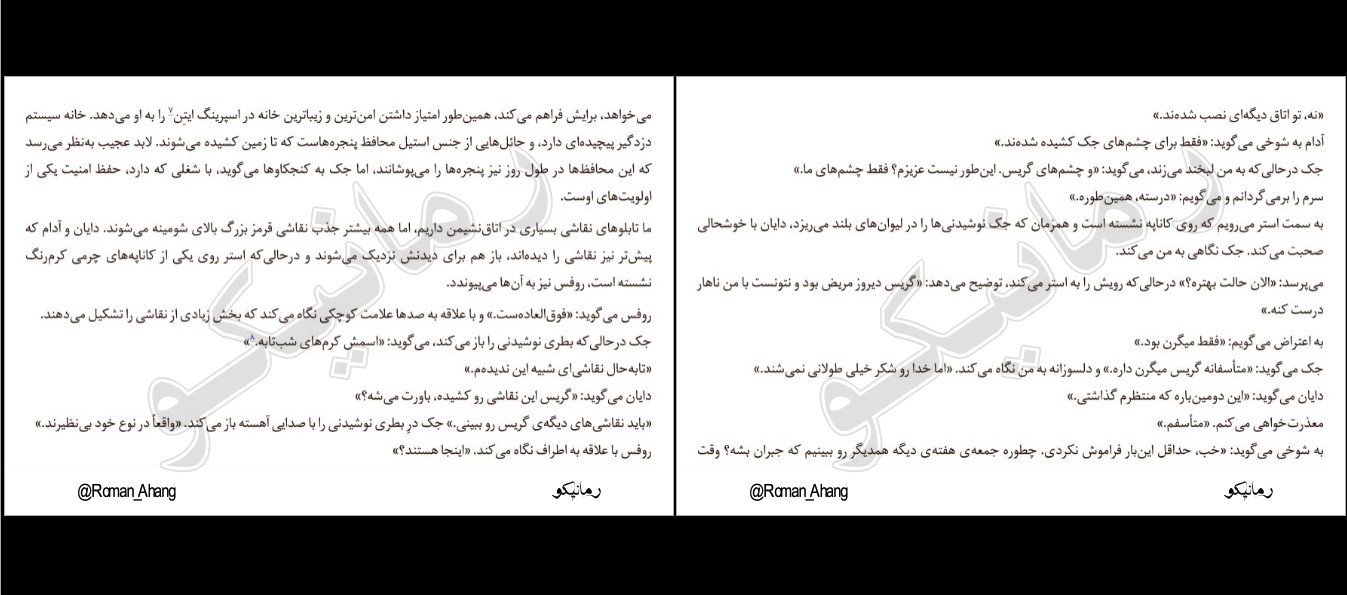 می‌خواهد، برایش فراهم می‌کند، همین‌طور امتیاز داشتن امن‌ترین و زیباترین خانه در اسپرینگ ایتِن۷ را به او می‌دهد. خانه سیستم
دزدگیر پیچیده‌ای دارد، و حائل‌هایی از جنس استیل محافظ پنجره‌هاست که تا زمین کشیده می‌شوند. لابد عجیب به‌نظر می‌رسد
که این محافظ‌ها در طول روز نیز پنجره‌ها را می‌پوشانند، اما جک به کنجکاوها می‌گوید، با شغلی که دارد، حفظ امنیت یکی از
اولویت‌های اوست.
ما تابلوهای نقاشی بسیاری در اتاق‌نشیمن داریم، اما همه بیشتر جذب نقاشی قرمز بزرگ بالای شومینه می‌شوند. دایان و آدام که
پیش‌تر نیز نقاشی را دیده‌اند، باز هم برای دیدنش نزدیک می‌شوند و درحالی‌که استر روی یکی از کاناپه‌های چرمی کرم‌رنگ
نشسته است، روفس نیز به آن‌ها می‌پیوندد.
روفس می‌گوید: «فوق‌العاده‌ست.» و با علاقه به صدها علامت کوچکی نگاه می‌کند که بخش زیادی از نقاشی را تشکیل می‌دهند.
جک درحالی‌که بطری نوشیدنی را باز می‌کند، می‌گوید: «اسمش کرم‌های شب‌تابه.۸»
«تابه‌حال نقاشی‌ای شبیه این ندیده‌م.»
دایان می‌گوید: «گریس این نقاشی رو کشیده، باورت می‌شه؟»
«باید نقاشی‌های دیگه‌ی گریس رو ببینی.» جک درِ بطری نوشیدنی را با صدایی آهسته باز می‌کند. «واقعاً در نوع خود بی‌نظیرند.»
روفس با علاقه به اطراف نگاه می‌کند. «اینجا هستند؟»
@Roman_Ahang رمانیکو
رمانیکو
«نه، تو اتاق دیگه‌ای نصب شده‌ند.»
آدام به شوخی می‌گوید: «فقط برای چشم‌های جک کشیده شده‌ند.»
جک درحالی‌که به من لبخند می‌زند، می‌گوید: «و چشم‌های گریس. این‌طور نیست عزیزم؟ فقط چشم‌های ما.»
سرم را برمی‌گردانم و می‌گویم: «درسته، همین‌طوره.»
به سمت استر می‌رویم که روی کاناپه نشسته است و همزمان که جک نوشیدنی‌ها را در لیوان‌های بلند می‌ریزد، دایان با خوشحالی
صحبت می‌کند. جک نگاهی به من می‌کند.
می‌پرسد: «الان حالت بهتره؟» درحالی‌که رویش را به استر می‌کند، توضیح می‌دهد: «گریس دیروز مریض بود و نتونست با من ناهار
درست کنه.»
به اعتراض می‌گویم: «فقط میگرن بود.»
جک می‌گوید: «متأسفانه گریس میگرن داره.» و دلسوزانه به من نگاه می‌کند. «اما خدا رو شکر خیلی طولانی نمی‌شند.»
دایان می‌گوید: «این دومین‌باره که منتظرم گذاشتی.»
معذرت‌خواهی می‌کنم. «متأسفم.»
به شوخی می‌گوید: «خب، حداقل این‌بار فراموش نکردی. چطوره جمعه‌ی هفته‌ی دیگه همدیگر رو ببینیم که جبران بشه؟ وقت
@Roman_Ahang رمانیکو
رمانیکو